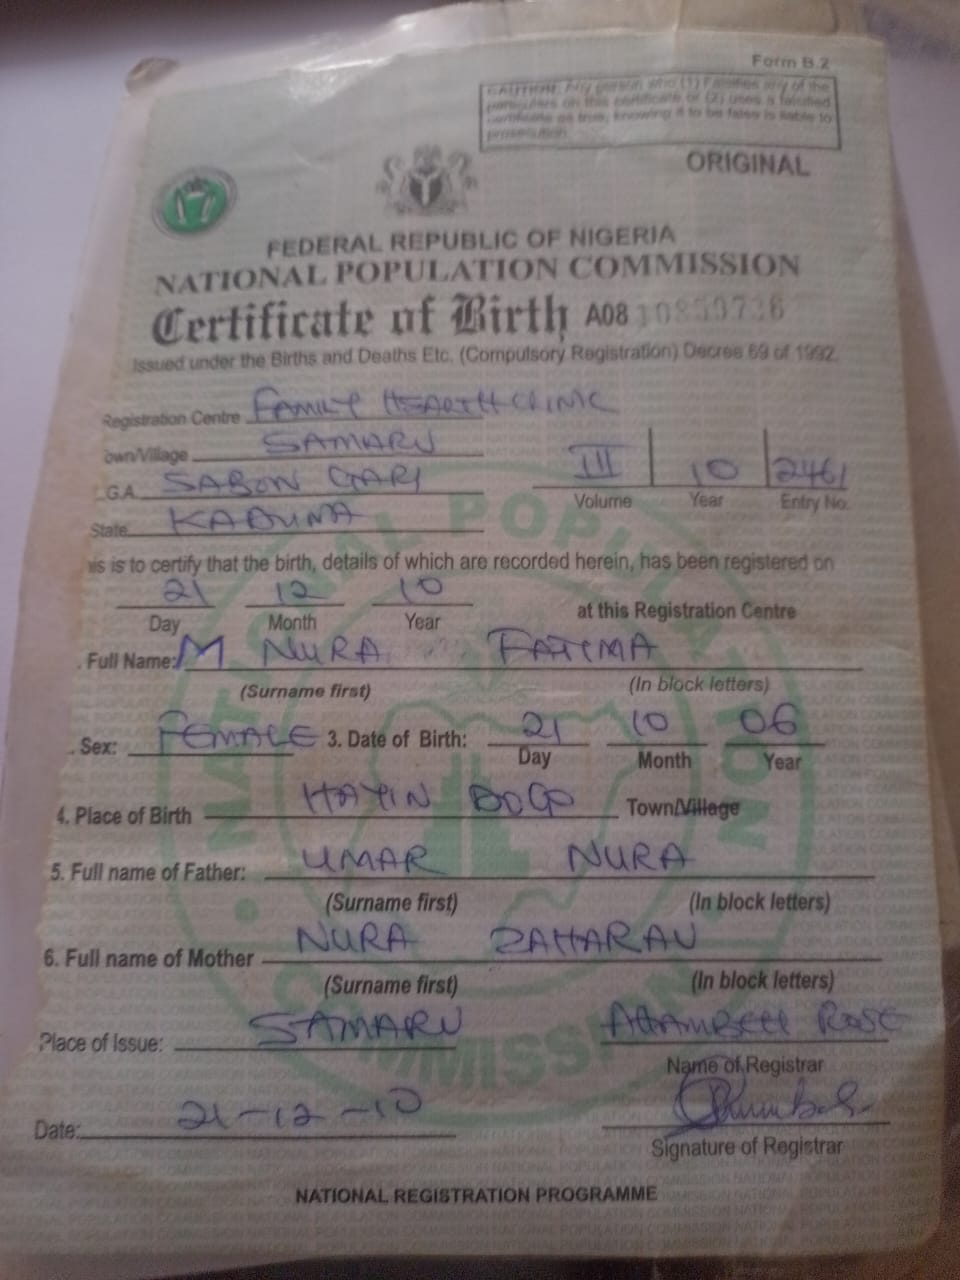 Form B.2
CAUTION: Any person who (1) Falsifies any of the
particulars on this certificate or (2) uses a falsified
certificate as true, knowing it to be false is liable to
prosecution
ORIGINAL
FEDERAL REPUBLIC OF NIGERIA
NATIONAL POPULATION COMMISSION
Certificate of Birth A08 10859736
Issued under the Births and Deaths Etc. (Compulsory Registration) Decree 69 of 1992.
Registration Centre FAMILY HEALTH CLINIC
own/Village SAMARU
L.G.A. SABON GARI
III 10 2461
Volume Year Entry No.
State KADUNA
is is to certify that the birth, details of which are recorded herein, has been registered on
21 12 10 at this Registration Centre
Day Month Year
. Full Name: M NURA FATIMA
(Surname first) (In block letters)
. Sex: FEMALE 3. Date of Birth: 21 10 06
Day Month Year
4. Place of Birth HAYIN DOGO Town/Village
5. Full name of Father: UMAR NURA
(Surname first) (In block letters)
6. Full name of Mother NURA ZAHARAU
(Surname first) (In block letters)
Place of Issue: SAMARU ROSE
Name of Registrar
Date: 21-12-10
Signature of Registrar
NATIONAL REGISTRATION PROGRAMME
NATIONAL POPULATION COMMISSION